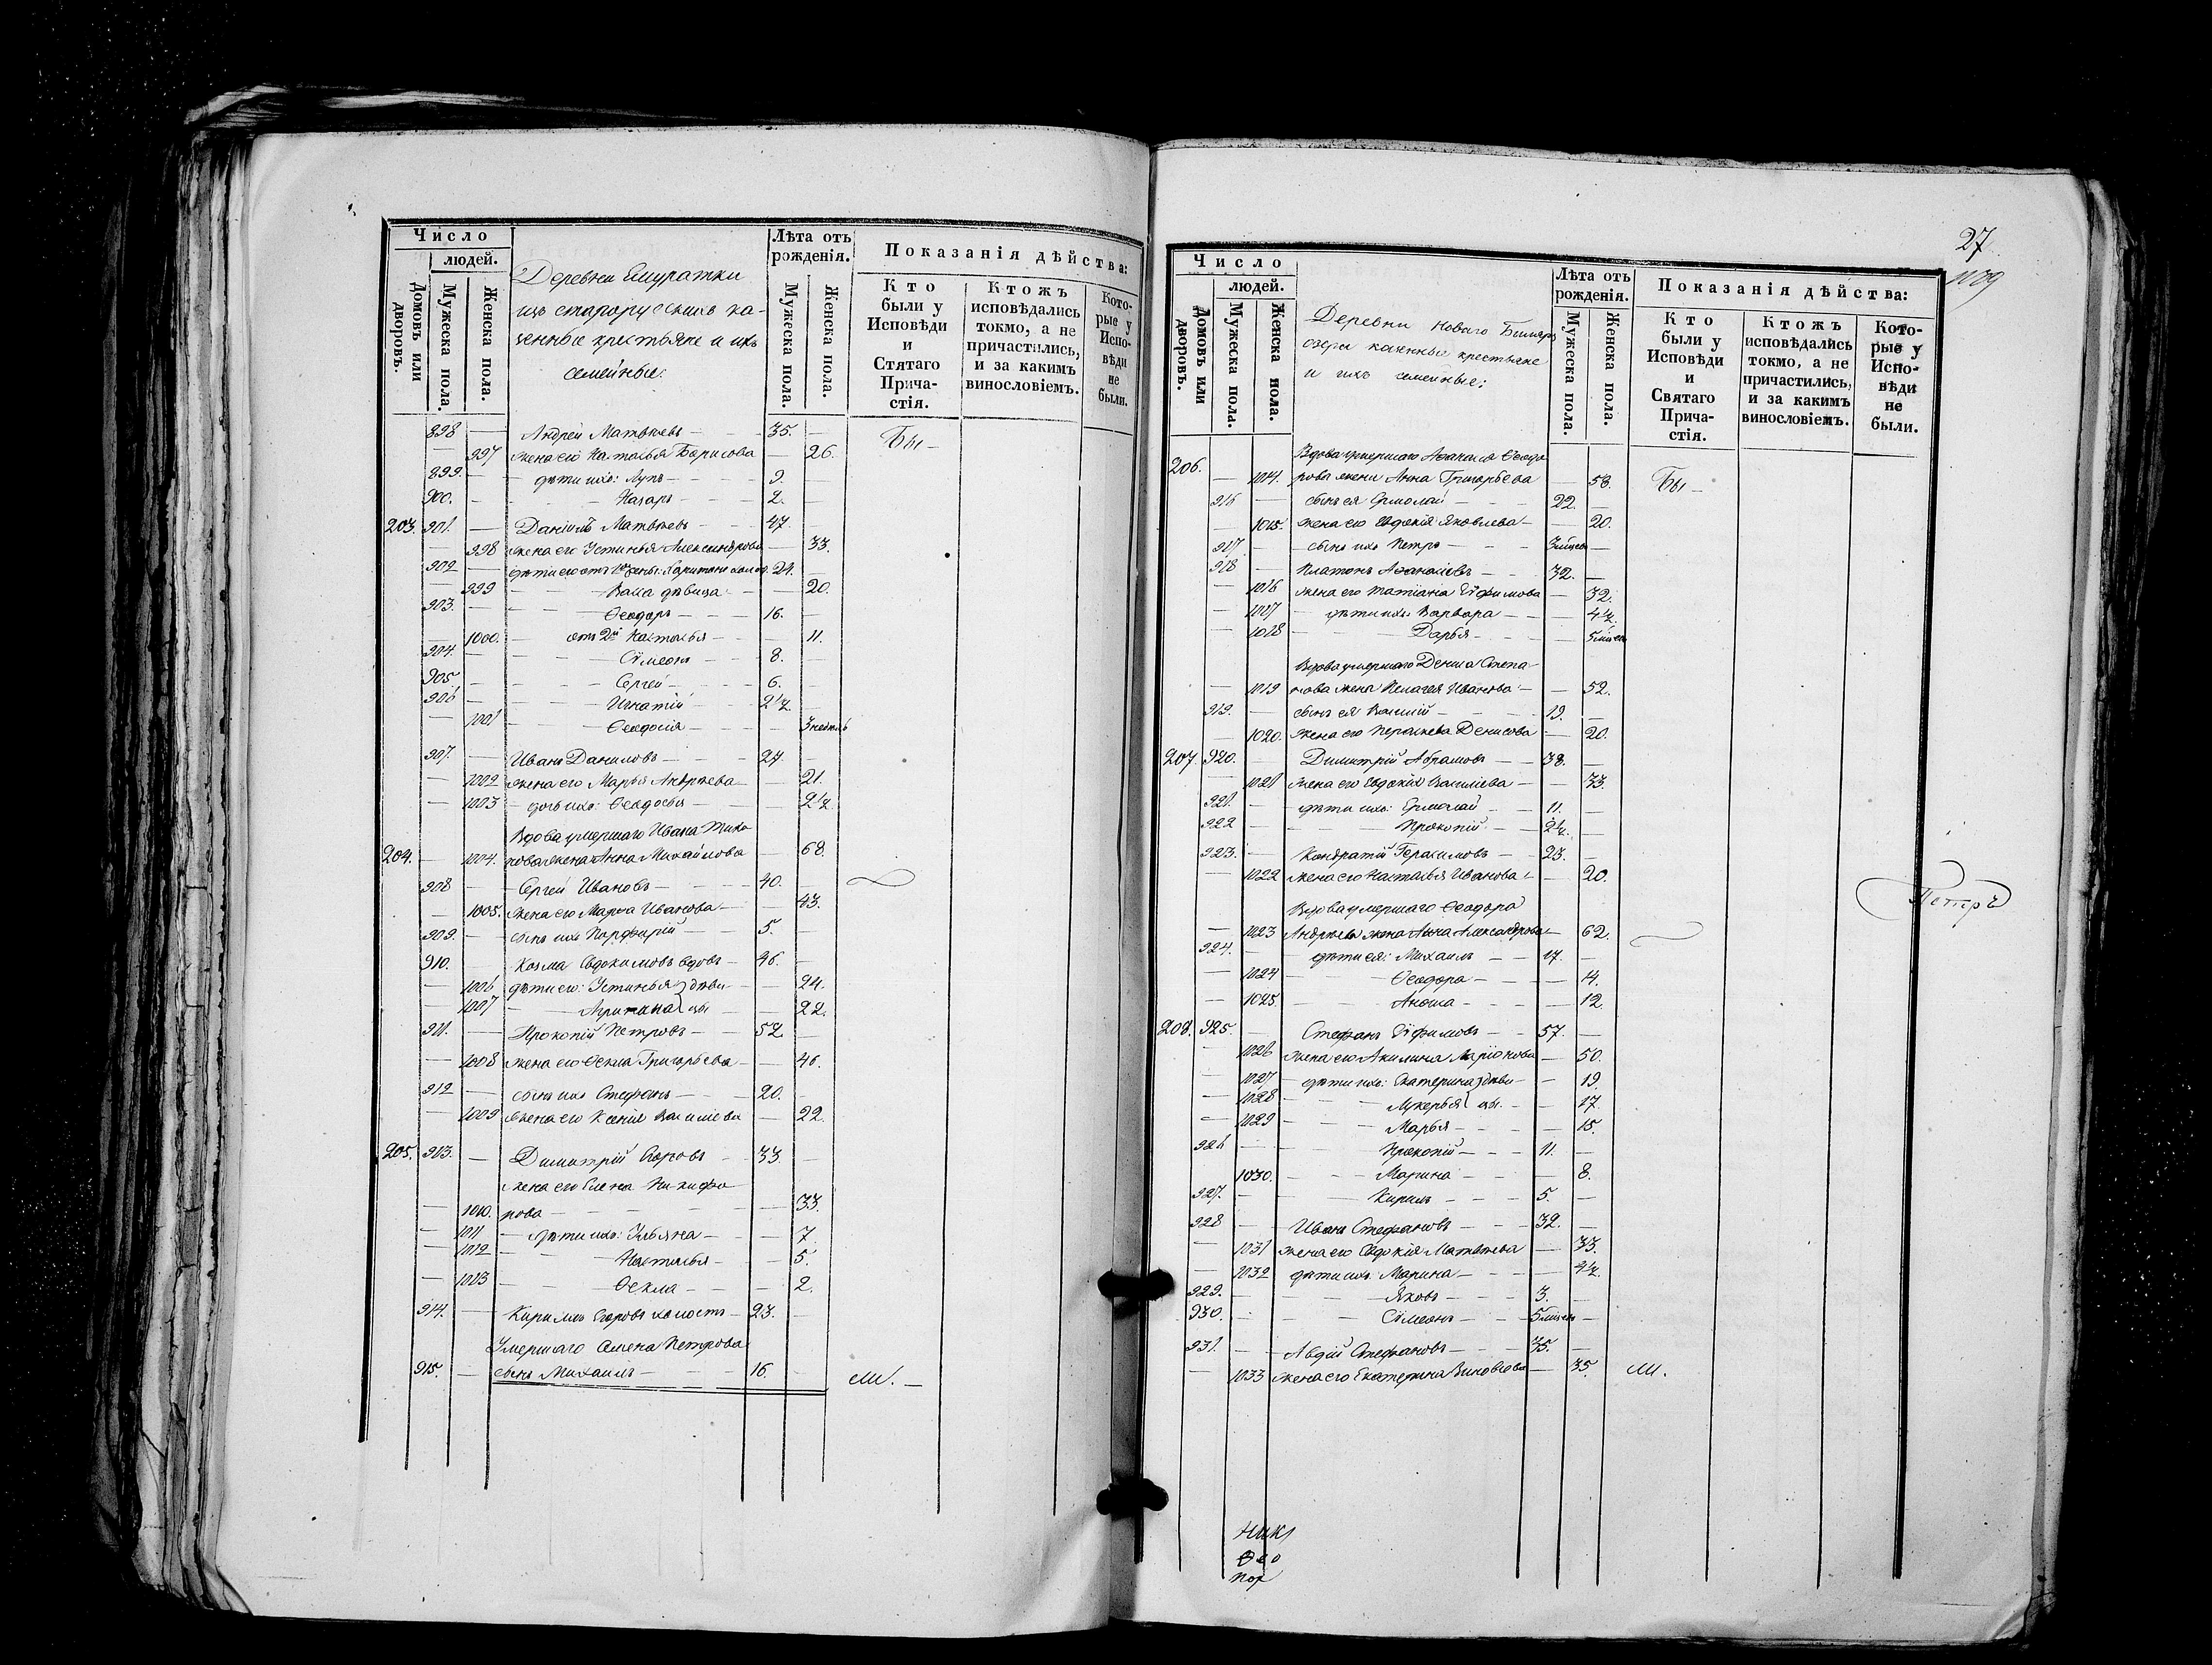 Число
людей.
Домовъ или дворовъ.
Мужеска пола.
Женска пола.
Деревни Емуратки
изъ старорусскихъ ка-
зенные крестьяне и ихъ
семейные:
Лѣта отъ рожденія.
Мужеска пола.
Женска пола.
Показанія дѣйства:
Кто были у Исповѣди и Стятаго Прича-стія.
Ктожъ исповѣдались токмо, а не причастились, и за какимъ винословіемъ.
Кото-рые у Испо-вѣди не были.
898 — Андрей Матвѣевъ — 35. — Бы —
— 997 жена его Наталья Борисова — 26.
899. — дѣти ихъ: Лупъ — 9.
900. — Назаръ — 2.
203. 901. — Даніилъ Матвѣевъ — 47. —
— 998 жена его Устинья Александрова — 33.
902 — дѣти его отъ 1й жены: Харитонъ холос. 24. —
— 999 — Васса дѣвица — 20.
903. — Ѳеодоръ — 16. —
— 1000. — отъ 2й Наталья — 11.
904. — Сѵмеонъ — 8. —
905 — Сергей — 6. —
906 — Игнатій 2½. —
— 1001 — Ѳеодосія — 3 недѣль
907. — Иванъ Даниловъ — 24 —
— 1002 жена его Марья Андреева — 21.
— 1003 — дочь ихъ: Ѳеодосья — 2½
Вдова умершаго Ивана Тихо
204. — 1004. нова жена Анна Михайлова — 68.
908 — Сергей Ивановъ — 40. —
— 1005. жена его Марѳа Иванова — 43.
909. — сынъ ихъ Порфирій — 5. —
910. — Козма Евдокимовъ вдовъ — 46. —
— 1006 дѣти его: Устинья } дѣви — 24.
— 1007 — Агрипина } цы — 22.
911. — Прокопій Петровъ — 52 —
— 1008 жена его Ѳекла Григорьева — 46.
912 — сынъ ихъ Стефанъ — 20. —
— 1009 жена его Ксенія Василіева — 22.
205. 913. — Димитрій Егоровъ — 33. —
жена его Елена Никифо
— 1010. рова — 33.
— 1011 — дѣти ихъ: Ульяна — 7.
— 1012 — Наталья — 5.
— 1013 — Ѳекла — 2.
914. — Кирилъ Егоровъ холостъ — 23. —
Умершаго Семена Петрова
915. — сынъ Михаилъ — 16. — ли. —
27.
1109
Число
людей.
Домовъ или дворовъ.
Мужеска пола.
Женска пола.
Деревни Новаго Биляръ
озера казенные крестьяне
и ихъ семейные:
Лѣта отъ рожденія.
Мужеска пола.
Женска пола.
Показанія дѣйства:
Кто были у Исповѣди и Святаго Прича-стія.
Ктожъ исповѣдались токмо, а не причастились, и за какимъ винословіемъ.
Кото-рые у Испо-вѣди не были.
Вдова умершаго Аѳанасія Ѳеодо
206. — 1014. рова жена Анна Григорьева — 58. Бы —
916 — сынъ ея Ермолай — 22. —
— 1015. жена его Евдокія Яковлева — 20.
917 — сынъ ихъ Петръ — 3 мѣсец —
918 — Платонъ Аѳанасіевъ — 32. —
— 1016 жена его Татіана Еѵфимова — 32.
— 1017 — дѣти ихъ: Варвара — 4½
— 1018 — Дарья — 5 мѣсец
Вдова умершаго Дениса Степа
— 1019 нова жена Пелагея Иванова — 52.
919. — сынъ ея Василій — 19. —
— 1020. жена его Денисова — 20.
207. 920. — Димитрій Абрамовъ — 38. —
— 1021 жена его Евдокія Василіева — 33.
921. — дѣти ихъ: Ермолай — 11. —
922 — Прокопій — 2½. —
923. — Кондратій Герасимовъ — 23. —
— 1022 жена его Наталья Иванова — 20.
Вдова умершаго Ѳеодора
— 1023 Андреева жена Анна Александрова — 62.
924. — дѣти ея: Михаилъ — 17. —
— 1024 — Ѳеодора — 14.
— 1025. — Анисья — 12.
208. 925. — Стефанъ Еѵфимовъ — 57. —
— 1026 жена его Акилина Ларіонова — 50.
— 1027 — дѣти ихъ: Екатерина } дѣви — 19.
— 1028 — Лукерья } цы. — 17.
— 1029 — Марья — 15.
926 — Прокопій — 11. —
1030. — Марина — 8.
927. — Кирилъ — 5. —
928 — Иванъ Стефановъ — 32. —
— 1031 жена его Евдокія Матвѣева — 33.
— 1032 дѣти ихъ: Марина — 9½.
929. — Яковъ — 3. —
930. — Сѵмеонъ — 5 мѣсец —
931. — Авдій Стефановъ — 35. —
1033 жена его Екатерина — 35. ли.
Петръ
Ник
Ѳео
пор